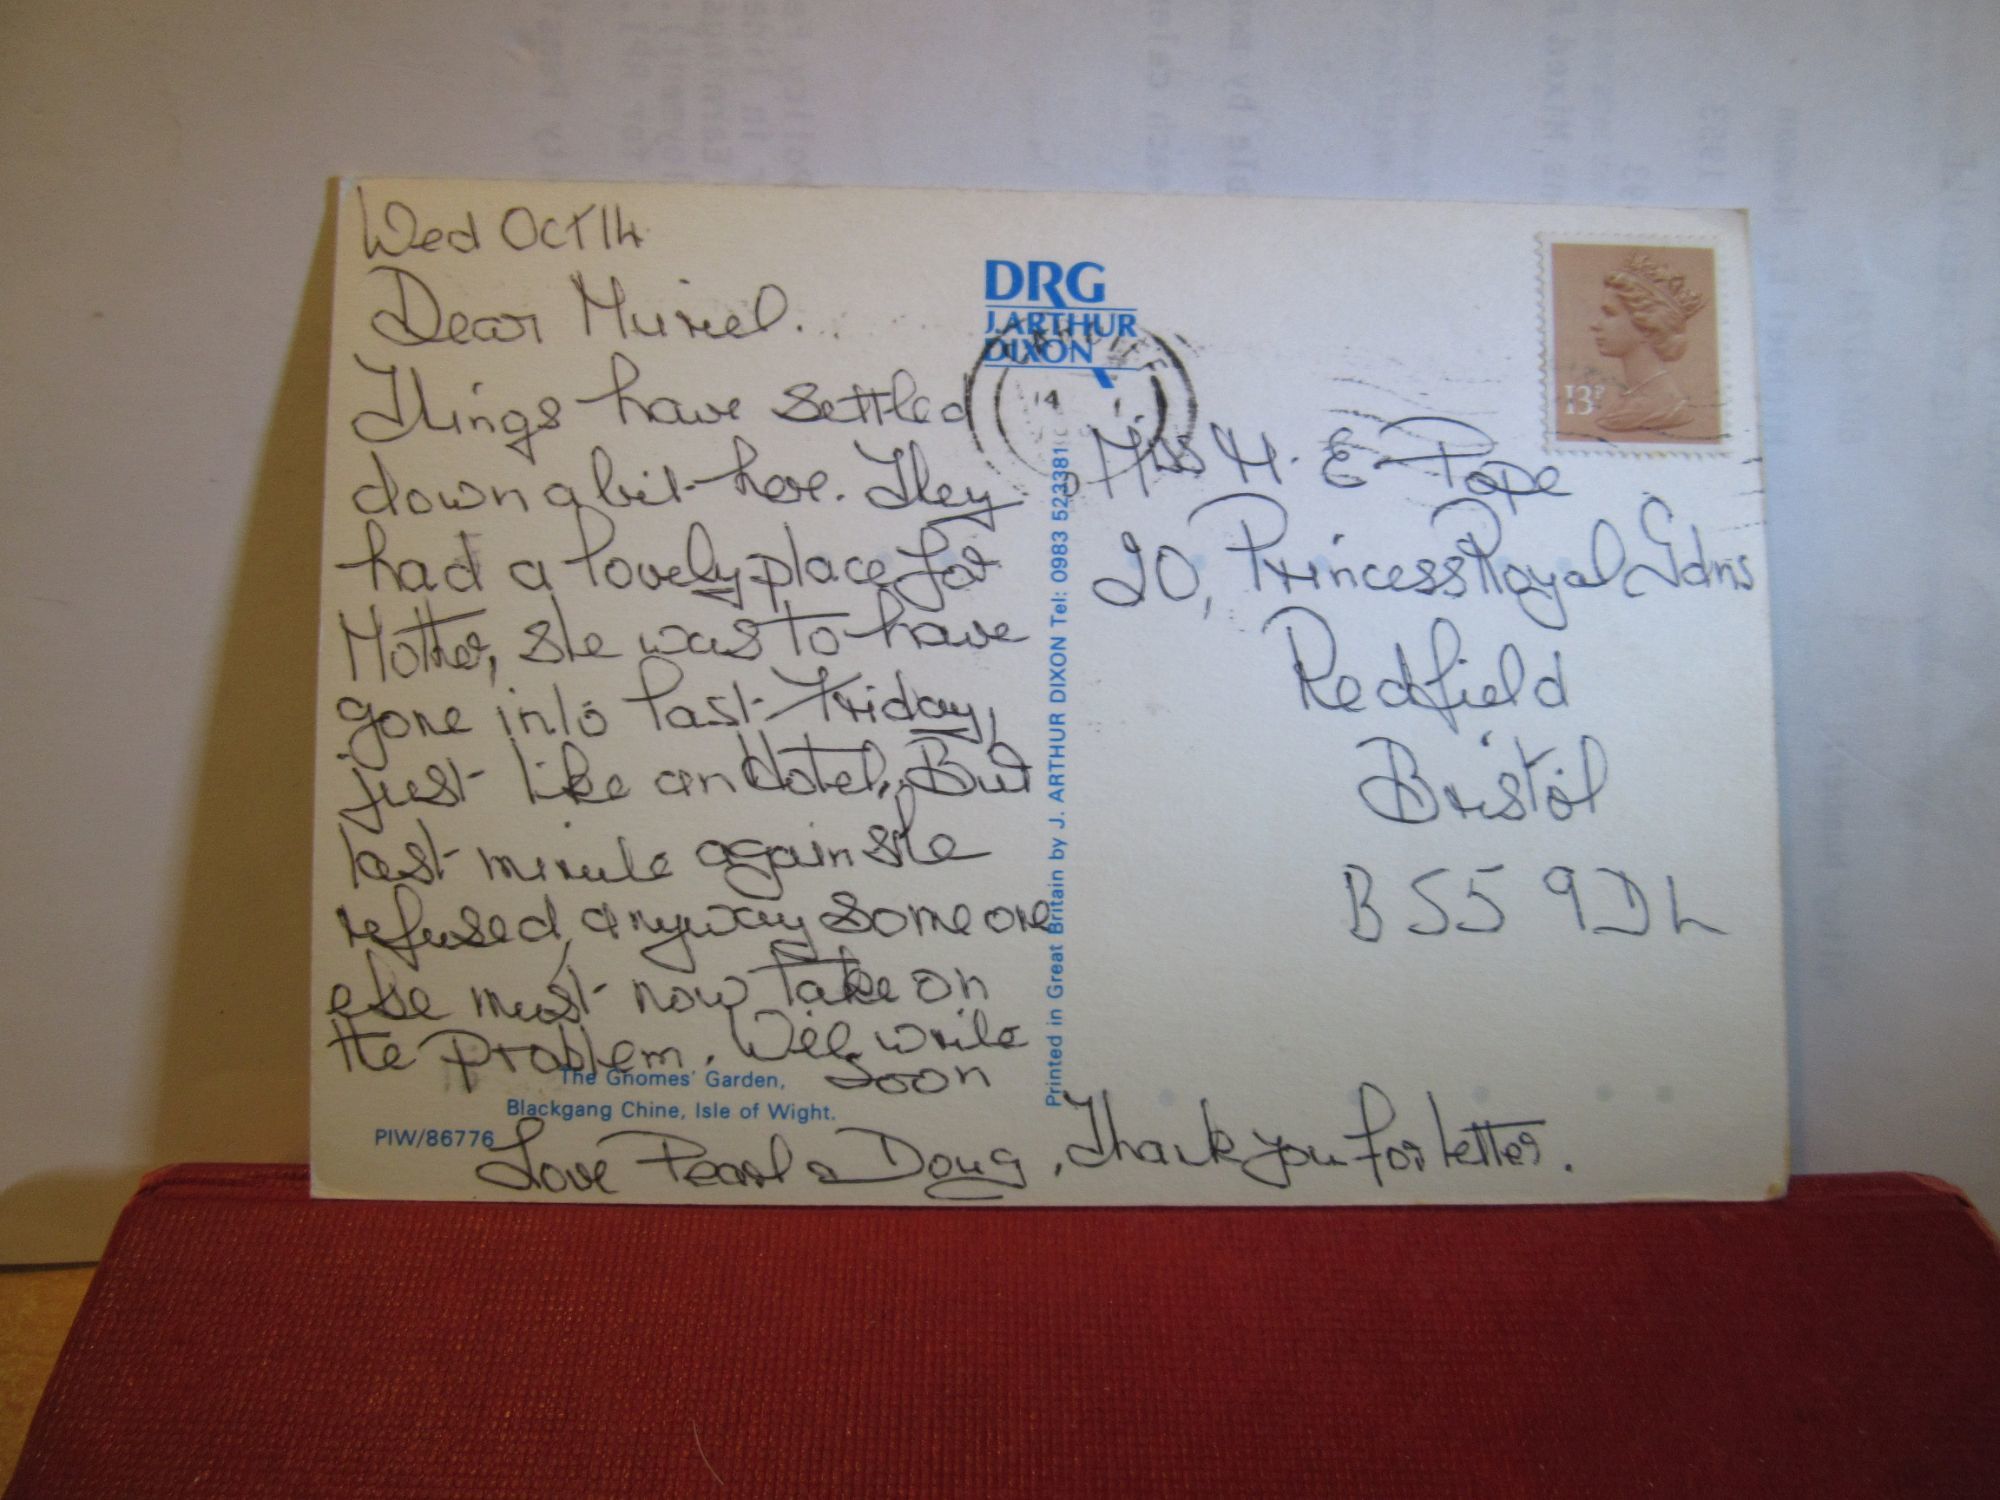 Wed Oct 14
Dear Muriel.
Things have settled
down a bit here. They
had a lovely place for
Mother, she was to have
gone into last Friday,
just like an Hotel, But
last minute again she
refused, anyway someone
else must now take on
the problem. Will write
soon
Love Pearl & Doug, Thank you for letter.
The Gnomes' Garden,
Blackgang Chine, Isle of Wight.
PIW/86776
DRG
J. ARTHUR
DIXON
14
Printed in Great Britain by J. ARTHUR DIXON Tel: 0983 523381
13P
Miss M. E Pope
20, Princess Royal Gdns
Redfield
Bristol
BS5 9DL